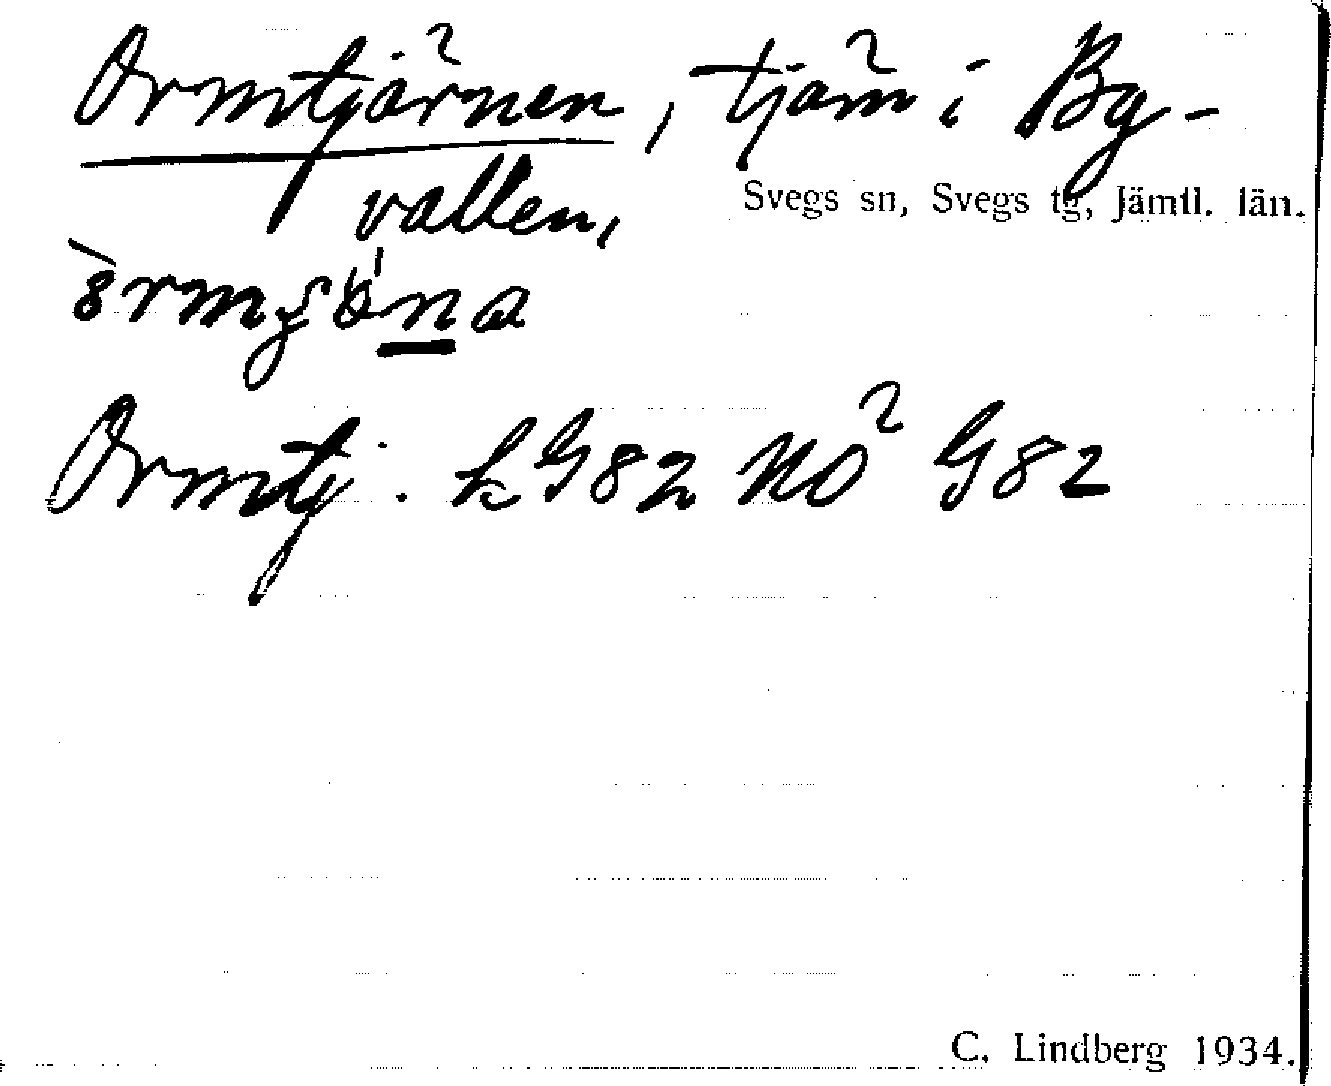 Ormtjärnen, tjärn i Bg-
vallen,
Svegs sn, Svegs tg, Jämtl. län.
Ormtj. k G82 NO² G82
C. Lindberg 1934.